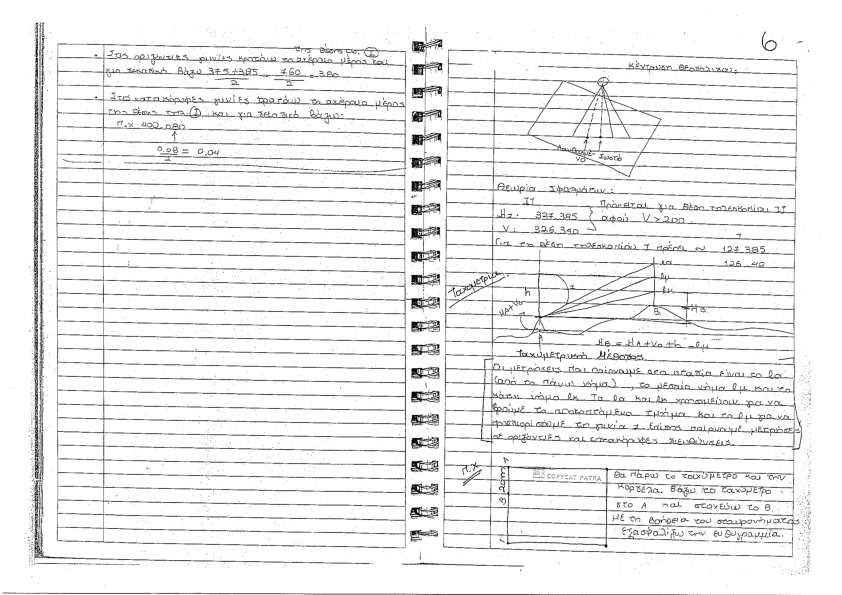 της θέσης με. Ⓘ
• Στις οριζόντιες γωνίες κρατάω το ακέραιο μέρος και
για δεκαδικά βάζω 375+385 / 2 = 760 / 2 = 380
• Στις κατακόρυφες γωνίες κρατάω το ακέραιο μέρος
της θέσης της Ⓘ και για δεκαδικά βάζω:
π.χ 400.080
0.08 / 2 = 0.04
6
Κέντρωση Θεοδόλιχου:
Λανθασμέ- Σωστό
νο
Θεωρία Σφαλμάτων:
II
Hz. 327.385 } Πρόκειται για θέση τηλεσκοπίου II
V: 326.340 αφού V>200
Για τη θέση τηλεσκοπίου I πρέπει ~ 127.385
I
126.40
Ταχυμετρία.
h
z
lα
lμ
lκ
HA+Vo
B
HB.
A
HB = HA+Vo+h-lμ
Ταχυμετρική Μέθοδος
Οι μετρήσεις που παίρνουμε στα στάδια είναι το lα
(από το πάνω νήμα), το μεσαίο νήμα lμ και το
κάτω νήμα lκ. Τα lα και lκ χρησιμεύουν για να
βρούμε το αποκοπτόμενο τμήμα και το lμ για να
προσδιορίσουμε τη γωνία z επίσης παίρνουμε μετρήσεις
σε οριζόντιες και κατακόρυφες διευθύνσεις.
π.χ
20m
B
COPYCAT PATRA
Θα πάρω το ταχύμετρο και την
κορδέλα. Βάζω το ταχύμετρο
στο Α και στοχεύω το Β.
Με τη βοήθεια του σταυρονήματος
εξασφαλίζω την ευθυγραμμία.